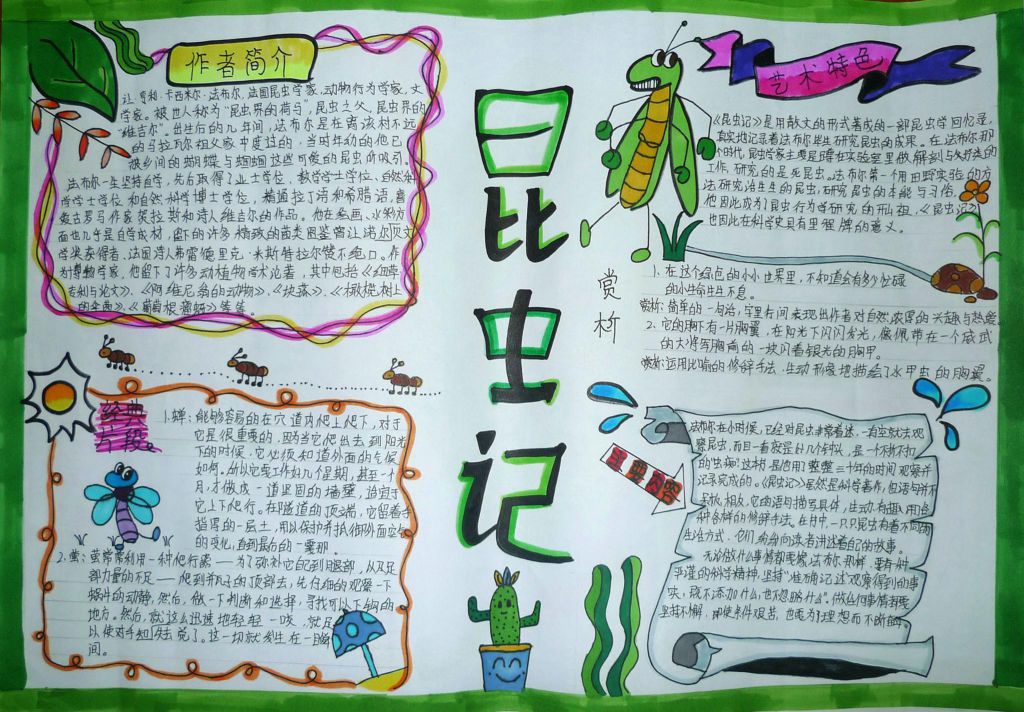 昆虫记
作者简介
让·亨利·卡西米尔·法布尔,法国昆虫学家,动物行为学家,文
学家。被世人称为“昆虫界的荷马”,昆虫之父,昆虫界的
“维吉尔”。出生后的几年间,法布尔是在离该村不远
的马拉瓦尔祖父家中度过的,当时年幼的他已
被乡间的蝴蝶与蝈蝈这些可爱的昆虫所吸引。
法布尔一生坚持自学,先后取得了业士学位,数学学士学位,自然科
学学士学位和自然科学博士学位,精通拉丁语和希腊语,喜
爱古罗马作家贺拉斯和诗人维吉尔的作品。他在绘画、水彩方
面也几乎是自学成材,留下的许多精致的菌类图鉴曾让诺尔贝文
学奖获得者、法国诗人弗雷德里克·米斯特拉尔赞不绝口。作
为博物学家,他留下了许多动植物学术论著,其中包括《茜草:
专利与论文》、《阿维尼翁的动物》、《块菰》、《橄榄树上
的伞菌》、《葡萄根瘤蚜》等等。
经典
片段
1.蝉:能够容易的在穴道内爬上爬下,对于
它是很重要的,因为当它爬出去到阳光
下的时候,它必须知道外面的气候
如何。所以它要工作好几个星期,甚至一个
月,才做成一道坚固的墙壁,适宜于
它上下爬行。在隧道的顶端,它留着手
指厚的一层土,用以保护并抵御外面空气
的变化,直到最后的一霎那。
2.萤:萤常常利用一种爬行器——为了弥补它自己腿部,以及足
部力量的不足——爬到瓶子的顶部去,先仔细的观察一下
蜗牛的动静,然后,做一下判断和选择,寻找可以下钩的
地方。然后,就这么迅速地轻轻一咬,就足
以使对手失去知觉了。这一切就发生在一瞬
间。
艺术特色
《昆虫记》是用散文的形式著成的一部昆虫学回忆录,
真实地记录着法布尔毕生研究昆虫的成果。在法布尔那
个时代,昆虫学家主要是蹲在实验室里做解剖与分类的
工作,研究的是死昆虫。法布尔第一个用田野实验的方
法研究活生生的昆虫,研究昆虫的本能与习俗。
他因此成为了昆虫行为学研究的开山祖,《昆虫记》
也因此在科学史具有里程牌的意义。
赏析
1、在这个绿色的小小世果里,不知道会有多少忙碌
的小生命生生不息。
赏析:简单的一句话,字里行间表现出作者对自然浓厚的兴趣与热爱。
2、它的胸下有一片胸翼,在阳光下闪闪发光,像佩带在一个威武
的大将军胸前的一块闪着银光的胸甲。
赏析:运用比喻的修辞手法,生动形象地描绘了水甲虫的胸翼。
主要内容
法布尔在小时候,已经对昆虫非常着迷,一有空就去观
察昆虫,而且一看就是好几个钟头,是一个不折不扣
的“虫痴”。这本书是他用了整整三十年的时间观察并
记录完成的。《昆虫记》虽然是科学著作,但语句并不
呆板,相反,它的语句描写具体,生动有趣,用各
种各样的修辞手法。在书中,一只只昆虫有着不同的
生活方式,它们纷纷向读者讲述着自己的故事。
无论做什么事情都要像法布尔那样,要有一种
严谨的科学精神,坚持“准确记述观察得到的事
实,既不添加什么,也不忽略什么”。做任何事情都要
坚持不懈,即使条件艰苦,也要为了理想而不断奋斗。